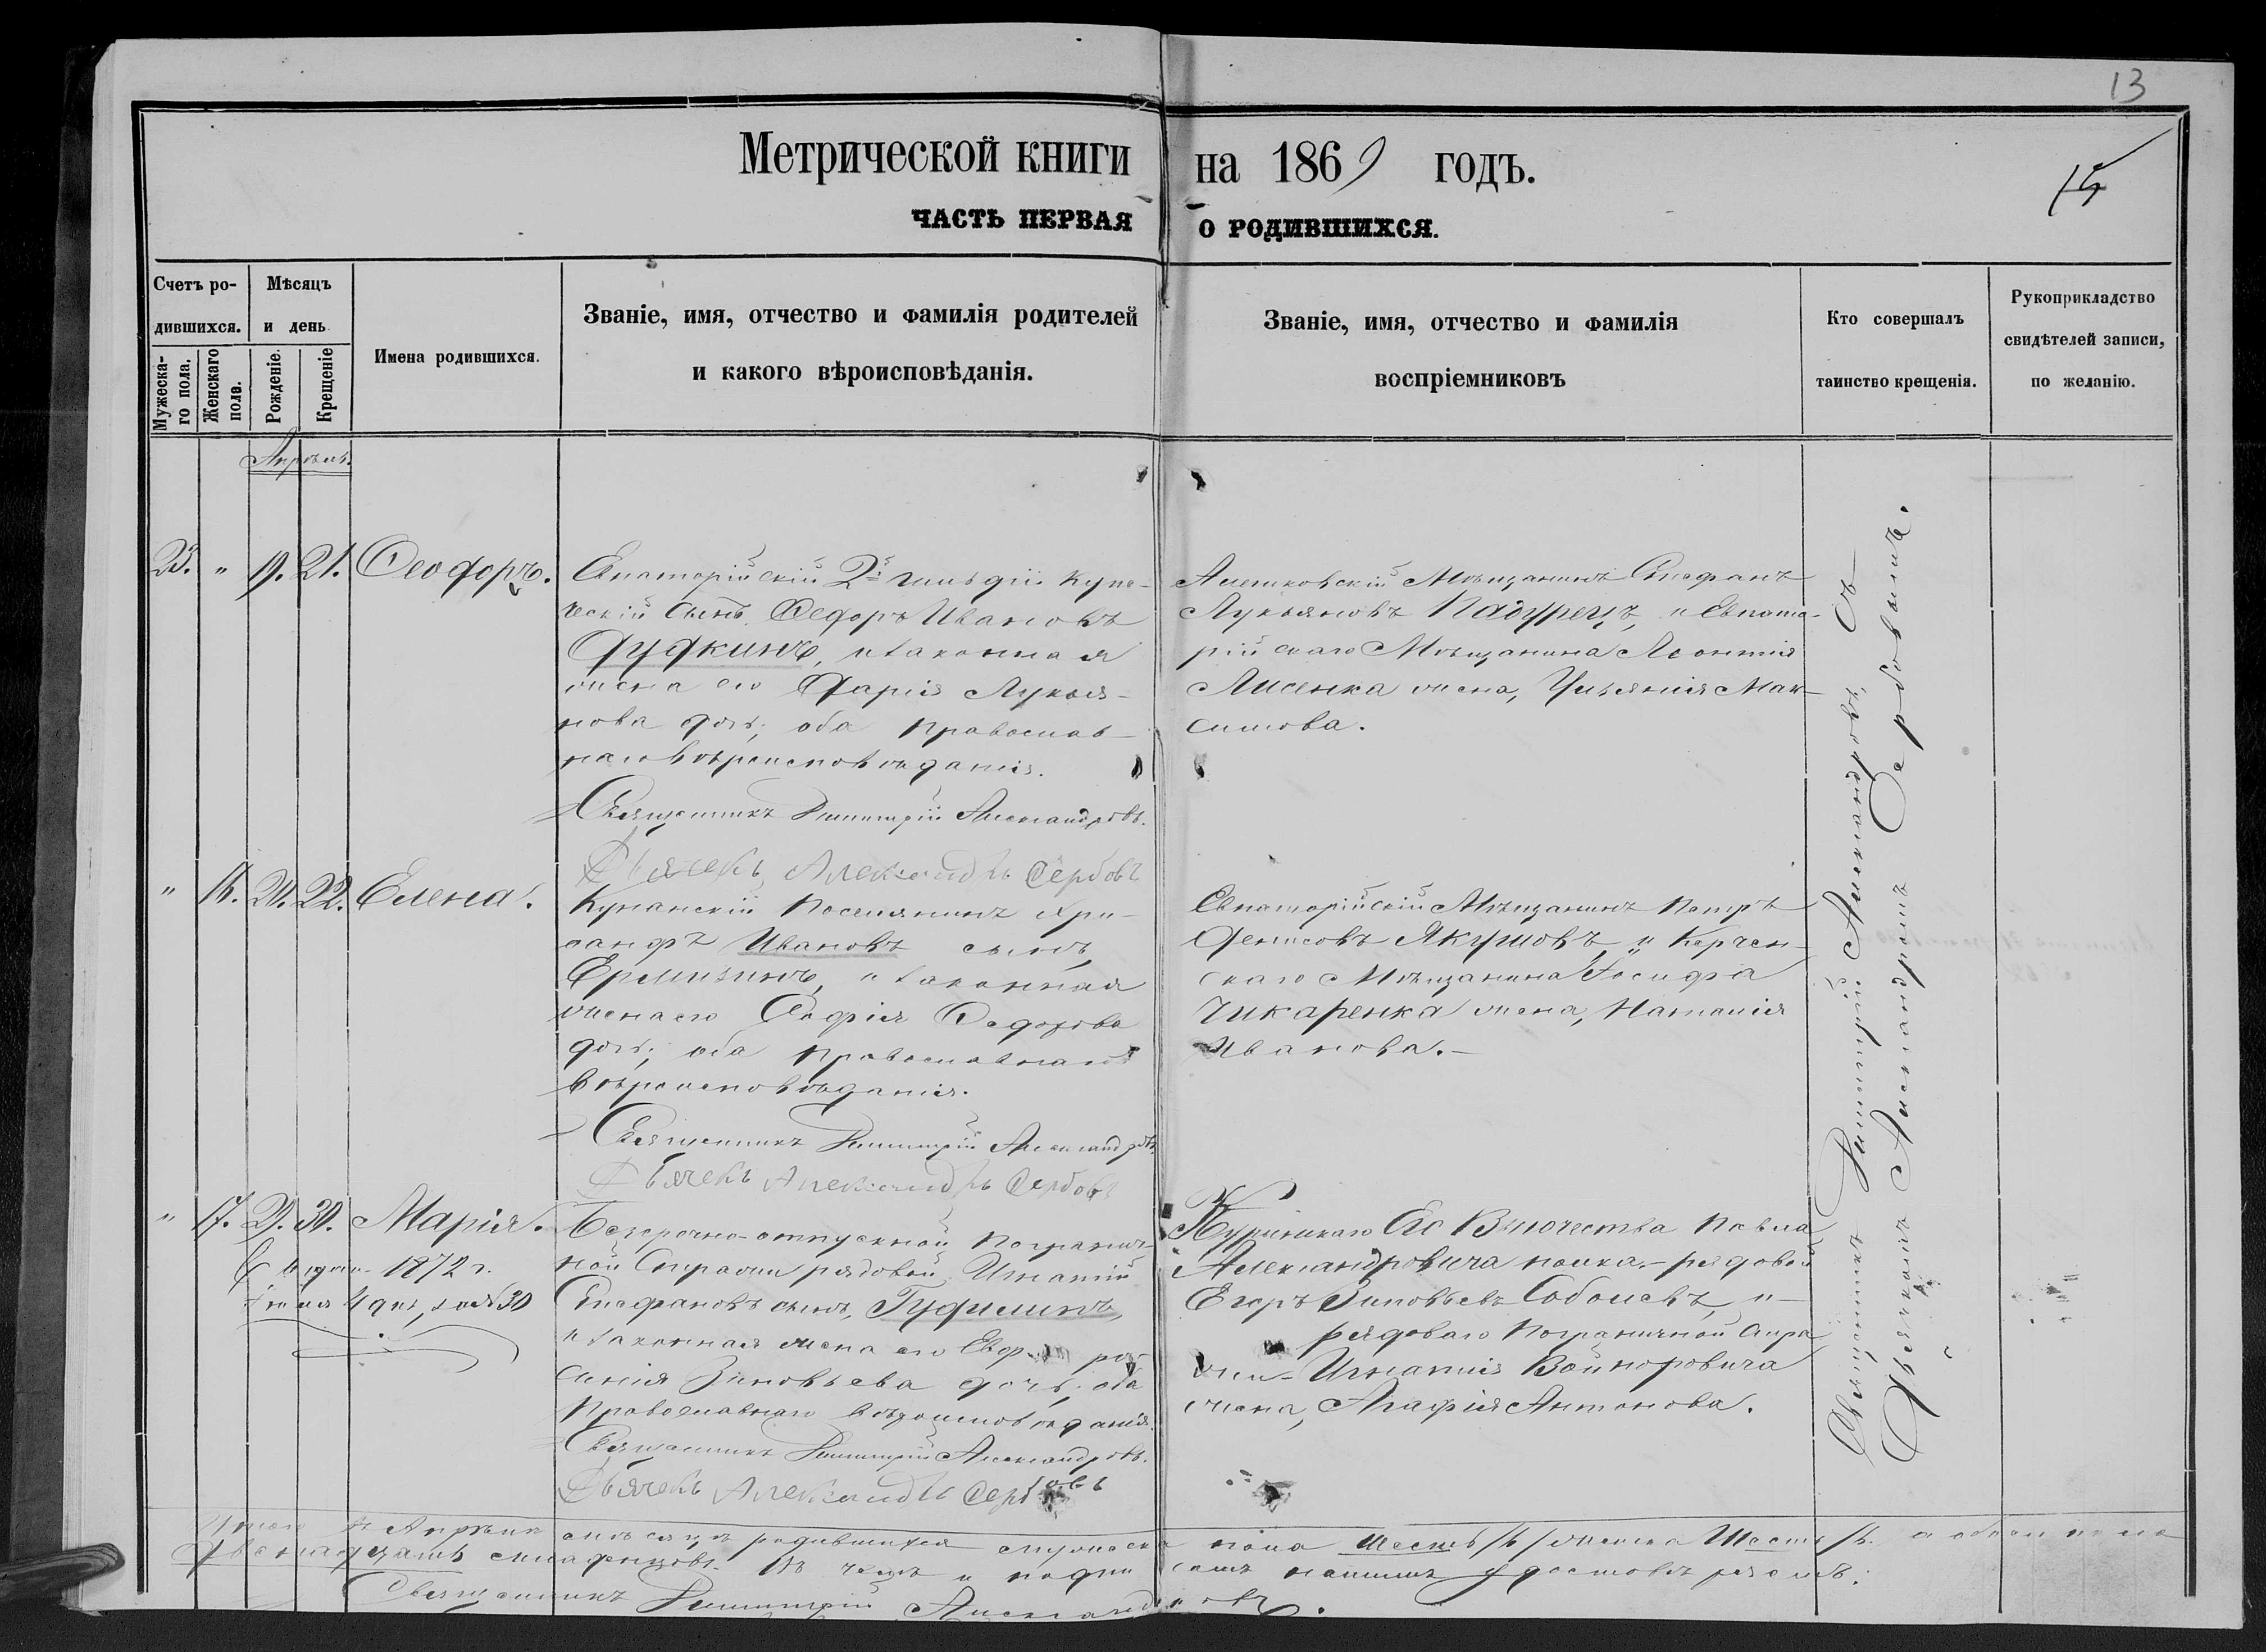 13
Метрической книги на 1869 годъ.
15
ЧАСТЬ ПЕРВАЯ О РОДИВШИХСЯ.
Счетъ родившихся.
Мужескаго пола.
Женскаго пола.
Мѣсяцъ и день
Рожденіе.
Крещеніе
Имена родившихся.
Званіе, имя, отчество и фамилія родителей
и какого вѣроисповѣданія.
Званіе, имя, отчество и фамилія
воспріемниковъ
Кто совершалъ
таинство крещенія.
Рукоприкладство
свидѣтелей записи,
по желанію.
Апрѣль
23. " 19. 21. Ѳеодоръ.
Евпаторійскій 2й гильдіи купе-
ческій сынъ, Ѳедоръ Ивановъ
Дудкинъ, и законная
жена его Дарія Лукья-
нова дочь; оба православ-
наго вѣроисповѣданія.
Священникъ Димитрій Александровъ.
Дьячекъ Александръ Сербовъ
Алешковскій Мѣщанинъ Стефанъ
Лукьяновъ Падурецъ, и Евпато-
рійскаго Мѣщанина Леонтія
Лисенка жена, Ульянія Мак-
симова.
" 16. 21. 22. Елена.
Посѣлянинъ Хри-
санфъ Ивановъ сынъ
и законная
жена его Софія Ѳедорова
дочь; оба православнаго
вѣроисповѣданія.
Священникъ Димитрій Александровъ.
Дьячекъ Александръ Сербовъ
Евпаторійскій Мѣщанинъ Петръ
Денисовъ Якушовъ, и Керчен-
скаго Мѣщанина Іосифа
Чикаренка жена, Наталія
Иванова.
" 17. 29. 30. Марія.
1872 г.
4 дня, за № 30
Безсрочно-отпускной погранич-
ной стражи рядовой Игнатій
Стефановъ сынъ,
и законная жена его Евфро-
синія Зиновьева дочь; оба
Православнаго вѣроисповѣданія.
Священникъ Димитрій Александровъ.
Дьячекъ Александръ Сербовъ
Его Высочества Павла
Александровича полка рядовой
Егоръ Зиновьевъ Соболевъ, и
рядоваго Пограничной Стра-
жи Игнатія Войноровича
жена, Агафія Антонова.
Священникъ Димитрій Александровъ съ
Дьячкомъ Александромъ Сербовымъ.
Итого въ Апрѣлѣ мѣсяцѣ родившихся мужеска пола шесть /6/ женска шесть /6. а обоего пола
двенадцать младенцовъ. Въ чемъ и подписомъ нашимъ удостовѣряемъ:
Священникъ Димитрій Александровъ.